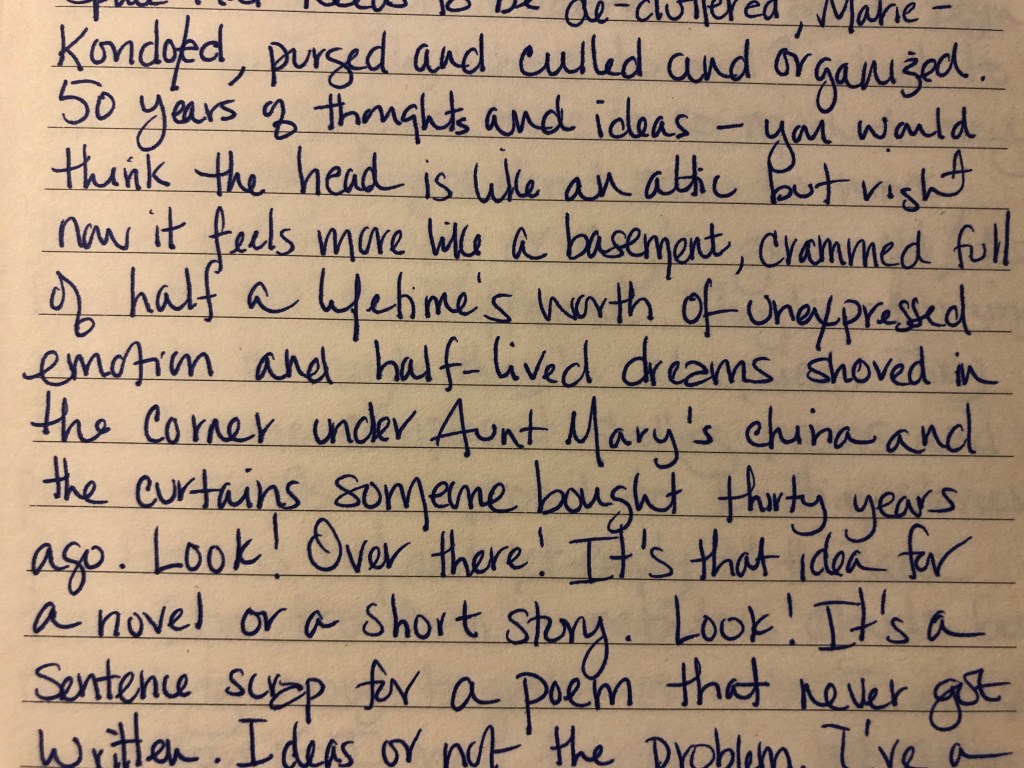 space that needs to be de-cluttered, Marie-
Kondoed, purged and culled and organized.
50 years of thoughts and ideas – you would
think the head is like an attic but right
now it feels more like a basement, crammed full
of half a lifetime's worth of unexpressed
emotion and half-lived dreams shoved in
the corner under Aunt Mary's china and
the curtains someone bought thirty years
ago. Look! Over there! It's that idea for
a novel or a short story. Look! It's a
sentence scrap for a poem that never got
written. Ideas or not the problem. I've a